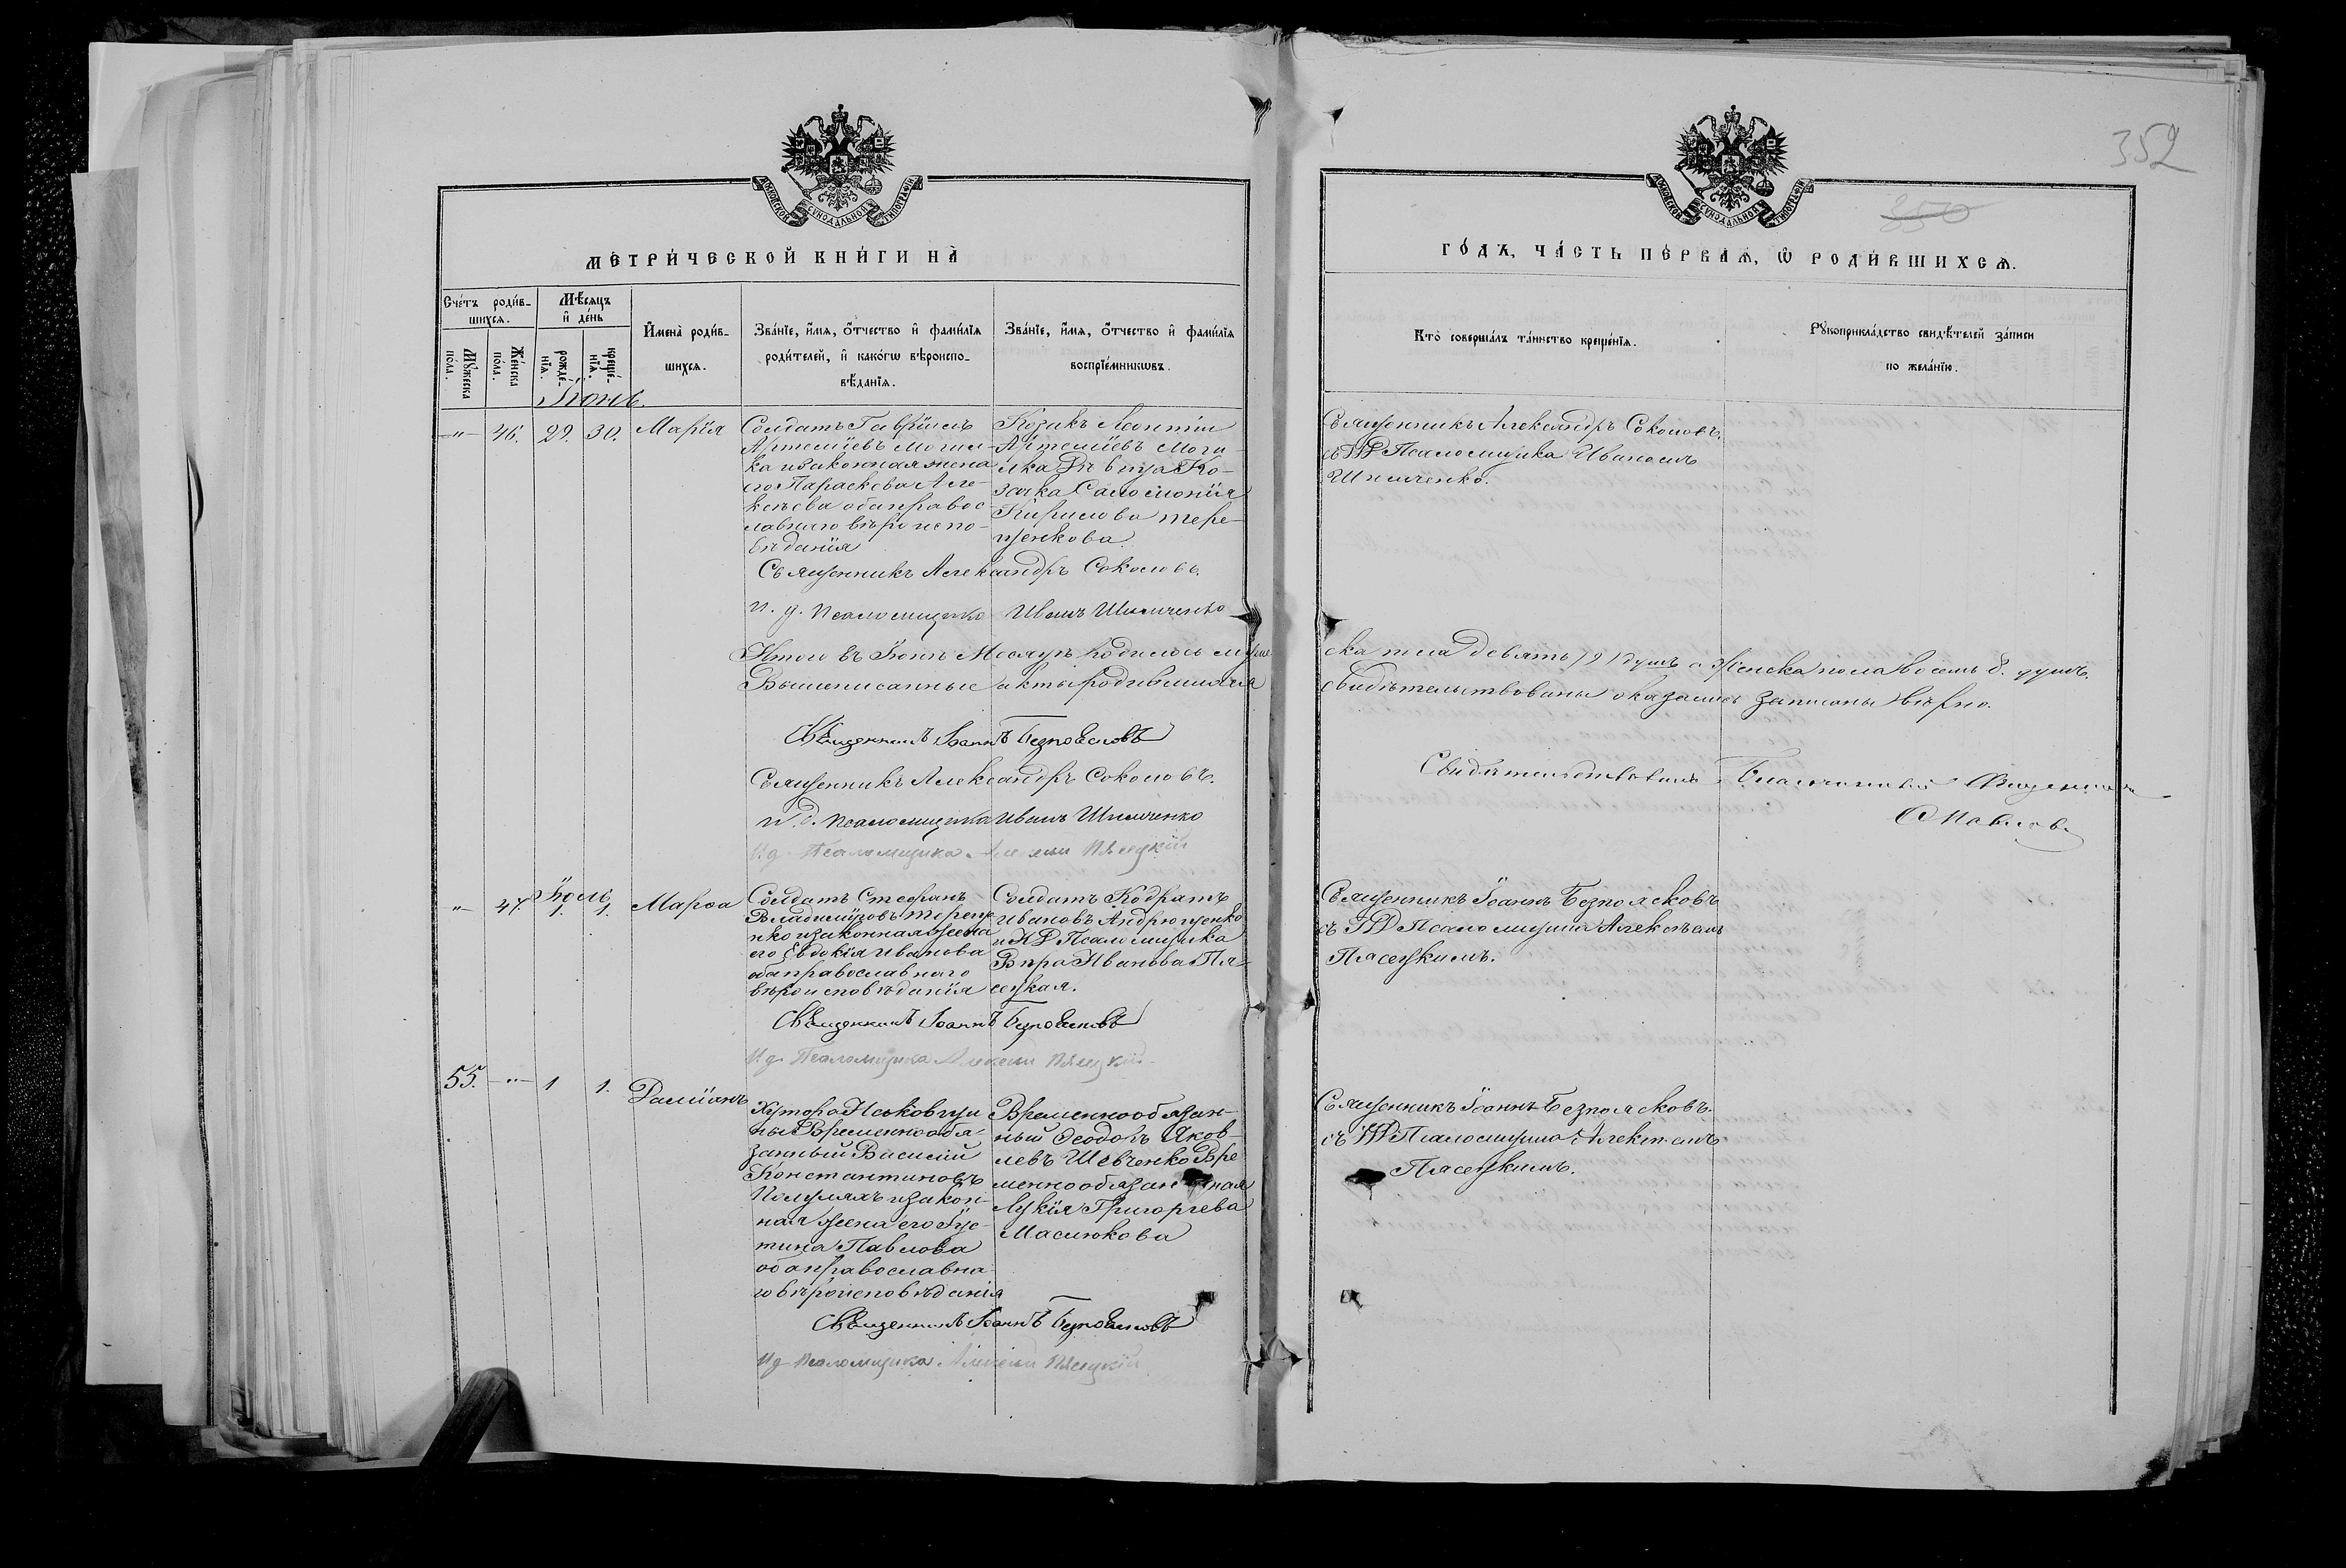 352
350
МОСКОВСКОЙ СУНОДАЛЬНОЙ ТИПОГРАФІИ
МОСКОВСКОЙ СУНОДАЛЬНОЙ ТИПОГРАФІИ
МЕТРИ́ЧЕСКОЙ КНИ́ГИ НА̀
ГО́ДЪ, ЧА́СТЬ ПЕ́РВАѦ, Ѽ РОДИ́ВШИХСѦ.
Сче́тъ роди́в-
шихсѧ.
Мꙋ́жеска по́ла.
Же́нска по́ла.
Мѣ́сѧцъ
и҆ де́нь
рожде́-нїѧ.
креще́-нїѧ.
И҆мена̀ роди́в-
шихсѧ.
Зва́нїе, и҆́мѧ, ѻ҆́тчество и҆ фами́лїѧ
роди́телей, и҆ како́гѡ вѣроиспо-
вѣ́данїѧ.
Зва́нїе, и҆́мѧ, ѻ҆́тчество и҆ фами́лїѧ
воспрїе́мникѡвъ.
Кто̀ соверша́лъ та́инство креще́нїѧ.
Рꙋкоприкла́дство свидѣ́телей за́писи
по жела́нїю.
Іюнь
—"— 46. 29. 30. Марія
Солдатъ Гавріилъ
Артеміевъ Могил-
ка и законная жена
его Параскева Але-
ксѣева оба правос-
лавнаго вѣроиспо-
вѣданія
Козакъ Леонтій
Артеміевъ Моги-
лка Дѣвица Ко-
зачка Саломонія
Кирилова Тере-
щенкова
Священникъ Александръ Соколовъ.
съ ИД Псаломщика Иваномъ
Шимченко.
Священникъ Александръ Соколовъ.
и. д. Псаломщика Иванъ Шимченко
Итого въ Іюнѣ Месяцѣ родилось муже
ска пола девять /9/ душъ а женска пола восемь 8. душъ.
Вышеписанные акты родившихся
свидѣтельствованы оказались записаны вѣрно.
Священникъ Іоаннъ Безполсковъ
Священникъ Александръ Соколовъ.
и. д. Псаломщика Иванъ Шимченко
И.д. Псаломщика Алексѣй Пясецкій
Свидѣтельствовалъ Благочинный Священникъ
Павловъ
Іюль
" 47. 1. 1. Марѳа
Солдатъ Стефанъ
Владиміровъ Тереще
нко и законная жена
его Евдокія Иванова
оба православнаго
вѣроисповѣданія
Солдатъ Кодратъ
Ивановъ Андрющенко
и ИД Псаломщика
Вѣра Иванова Пя-
сецкая.
Священникъ Іоаннъ Безполсковъ
съ ИД Псаломщика Алексѣемъ
Пясецкимъ.
Священникъ Іоаннъ Безполсковъ
И.д. Псаломщика Алексѣй Пясецкій
55. —"— 1 1. Даміанъ
Хутора Нековщи
ны Временнообя-
занный Василій
Константиновъ
и закон-
ная жена его Іус-
тина Павлова
оба православна-
го вѣроисповѣданія
Временнообязан-
ный Ѳеодоръ Яков-
левъ Шевченко Вре
меннообязанная
Лукія Григорьева
Масюкова
Священникъ Іоаннъ Безполсковъ.
съ ИД Псаломщика Алексѣемъ
Пясецкимъ.
Священникъ Іоаннъ Безполсковъ
И д Псаломщика Алексѣй Пясецкій